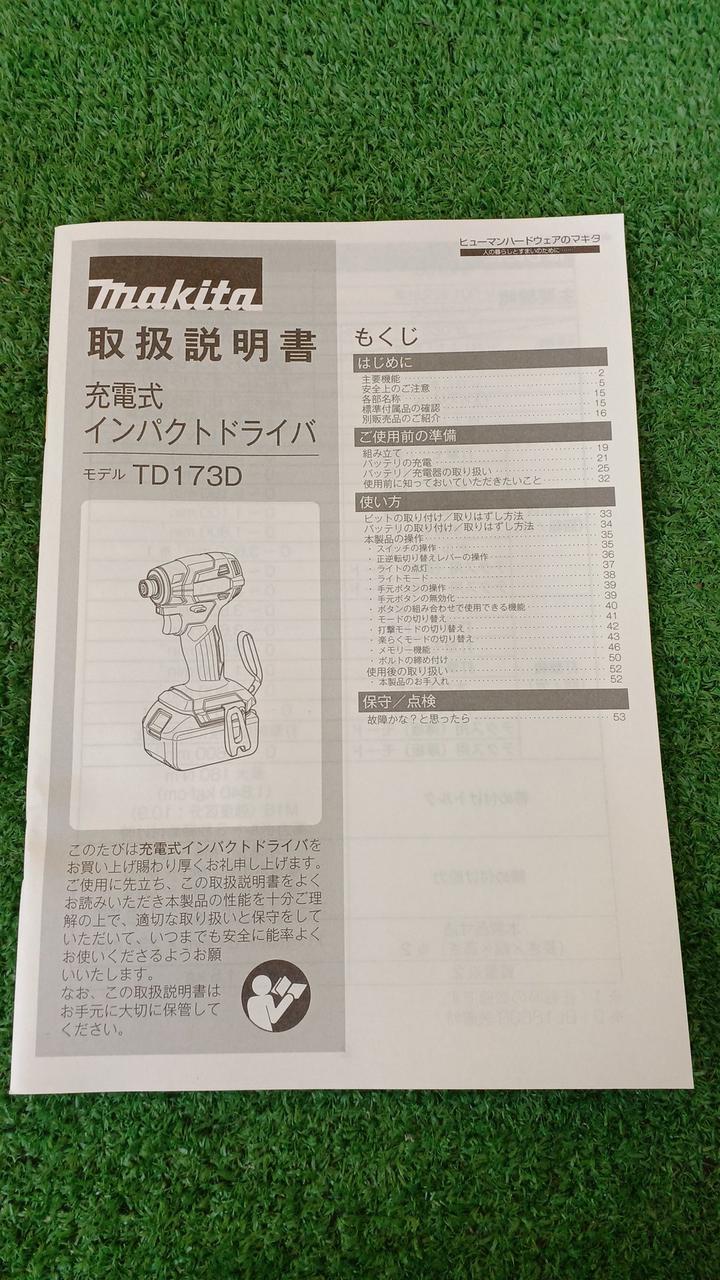 makita
取扱説明書
充電式
インパクトドライバ
モデル TD173D
このたびは充電式インパクトドライバを
お買い上げ賜わり厚くお礼申し上げます。
ご使用に先立ち、この取扱説明書をよく
お読みいただき本製品の性能を十分ご理
解の上で、適切な取り扱いと保守をして
いただいて、いつまでも安全に能率よく
お使いくださるようお願
いいたします。
なお、この取扱説明書は
お手元に大切に保管して
ください。
ヒューマンハードウェアのマキタ
人の暮らしとすまいのために……
もくじ
はじめに
主要機能 2
安全上のご注意 5
各部名称 15
標準付属品の確認 15
別販売品のご紹介 16
ご使用前の準備
組み立て 19
バッテリの充電 21
バッテリ／充電器の取り扱い 25
使用前に知っておいていただきたいこと 32
使い方
ビットの取り付け／取りはずし方法 33
バッテリの取り付け／取りはずし方法 34
本製品の操作 35
・スイッチの操作 35
・正逆転切り替えレバーの操作 36
・ライトの点灯 37
・ライトモード 38
・手元ボタンの操作 39
・手元ボタンの無効化 39
・ボタンの組み合わせで使用できる機能 40
・モードの切り替え 41
・打撃モードの切り替え 42
・楽らくモードの切り替え 43
・メモリー機能 46
・ボルトの締め付け 50
使用後の取り扱い 52
・本製品のお手入れ 52
保守／点検
故障かな？と思ったら 53